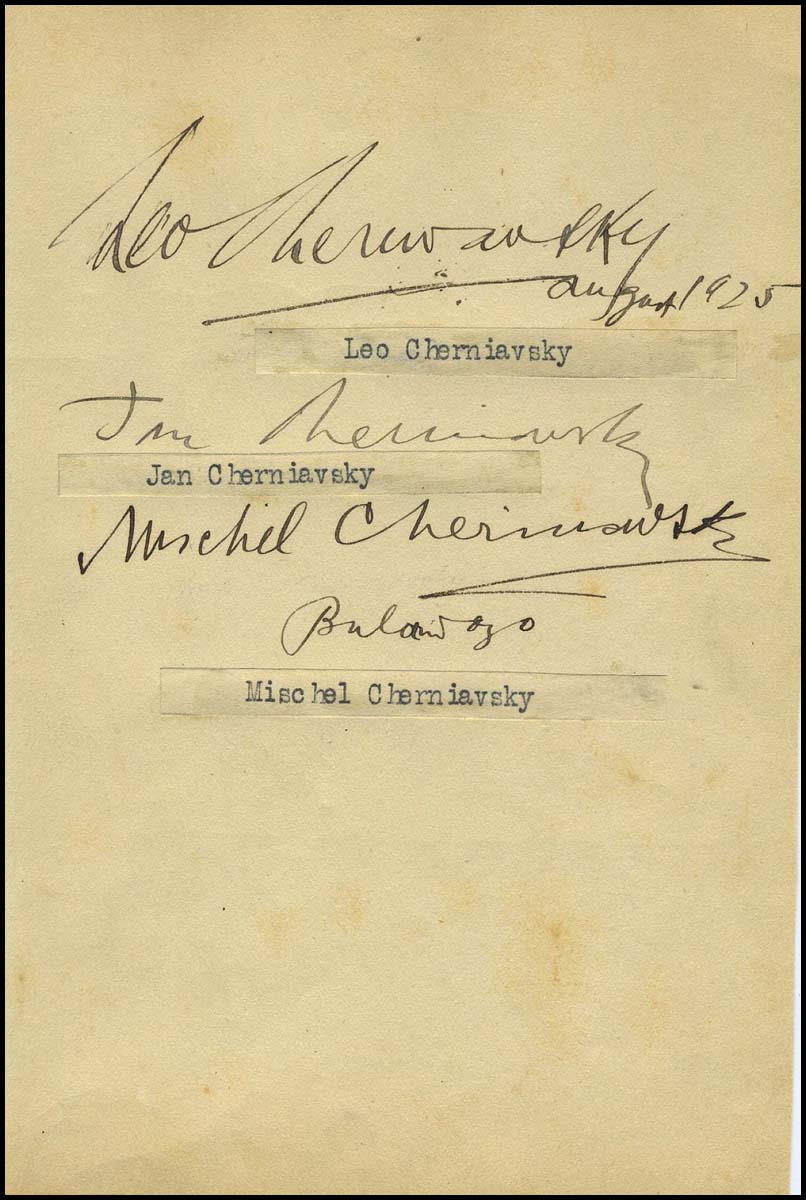 Leo Cherniavsky
August 1925
Leo Cherniavsky
Jan Cherniavsky
Jan Cherniavsky
Mischel Cherniavsky
Bulawayo
Mischel Cherniavsky